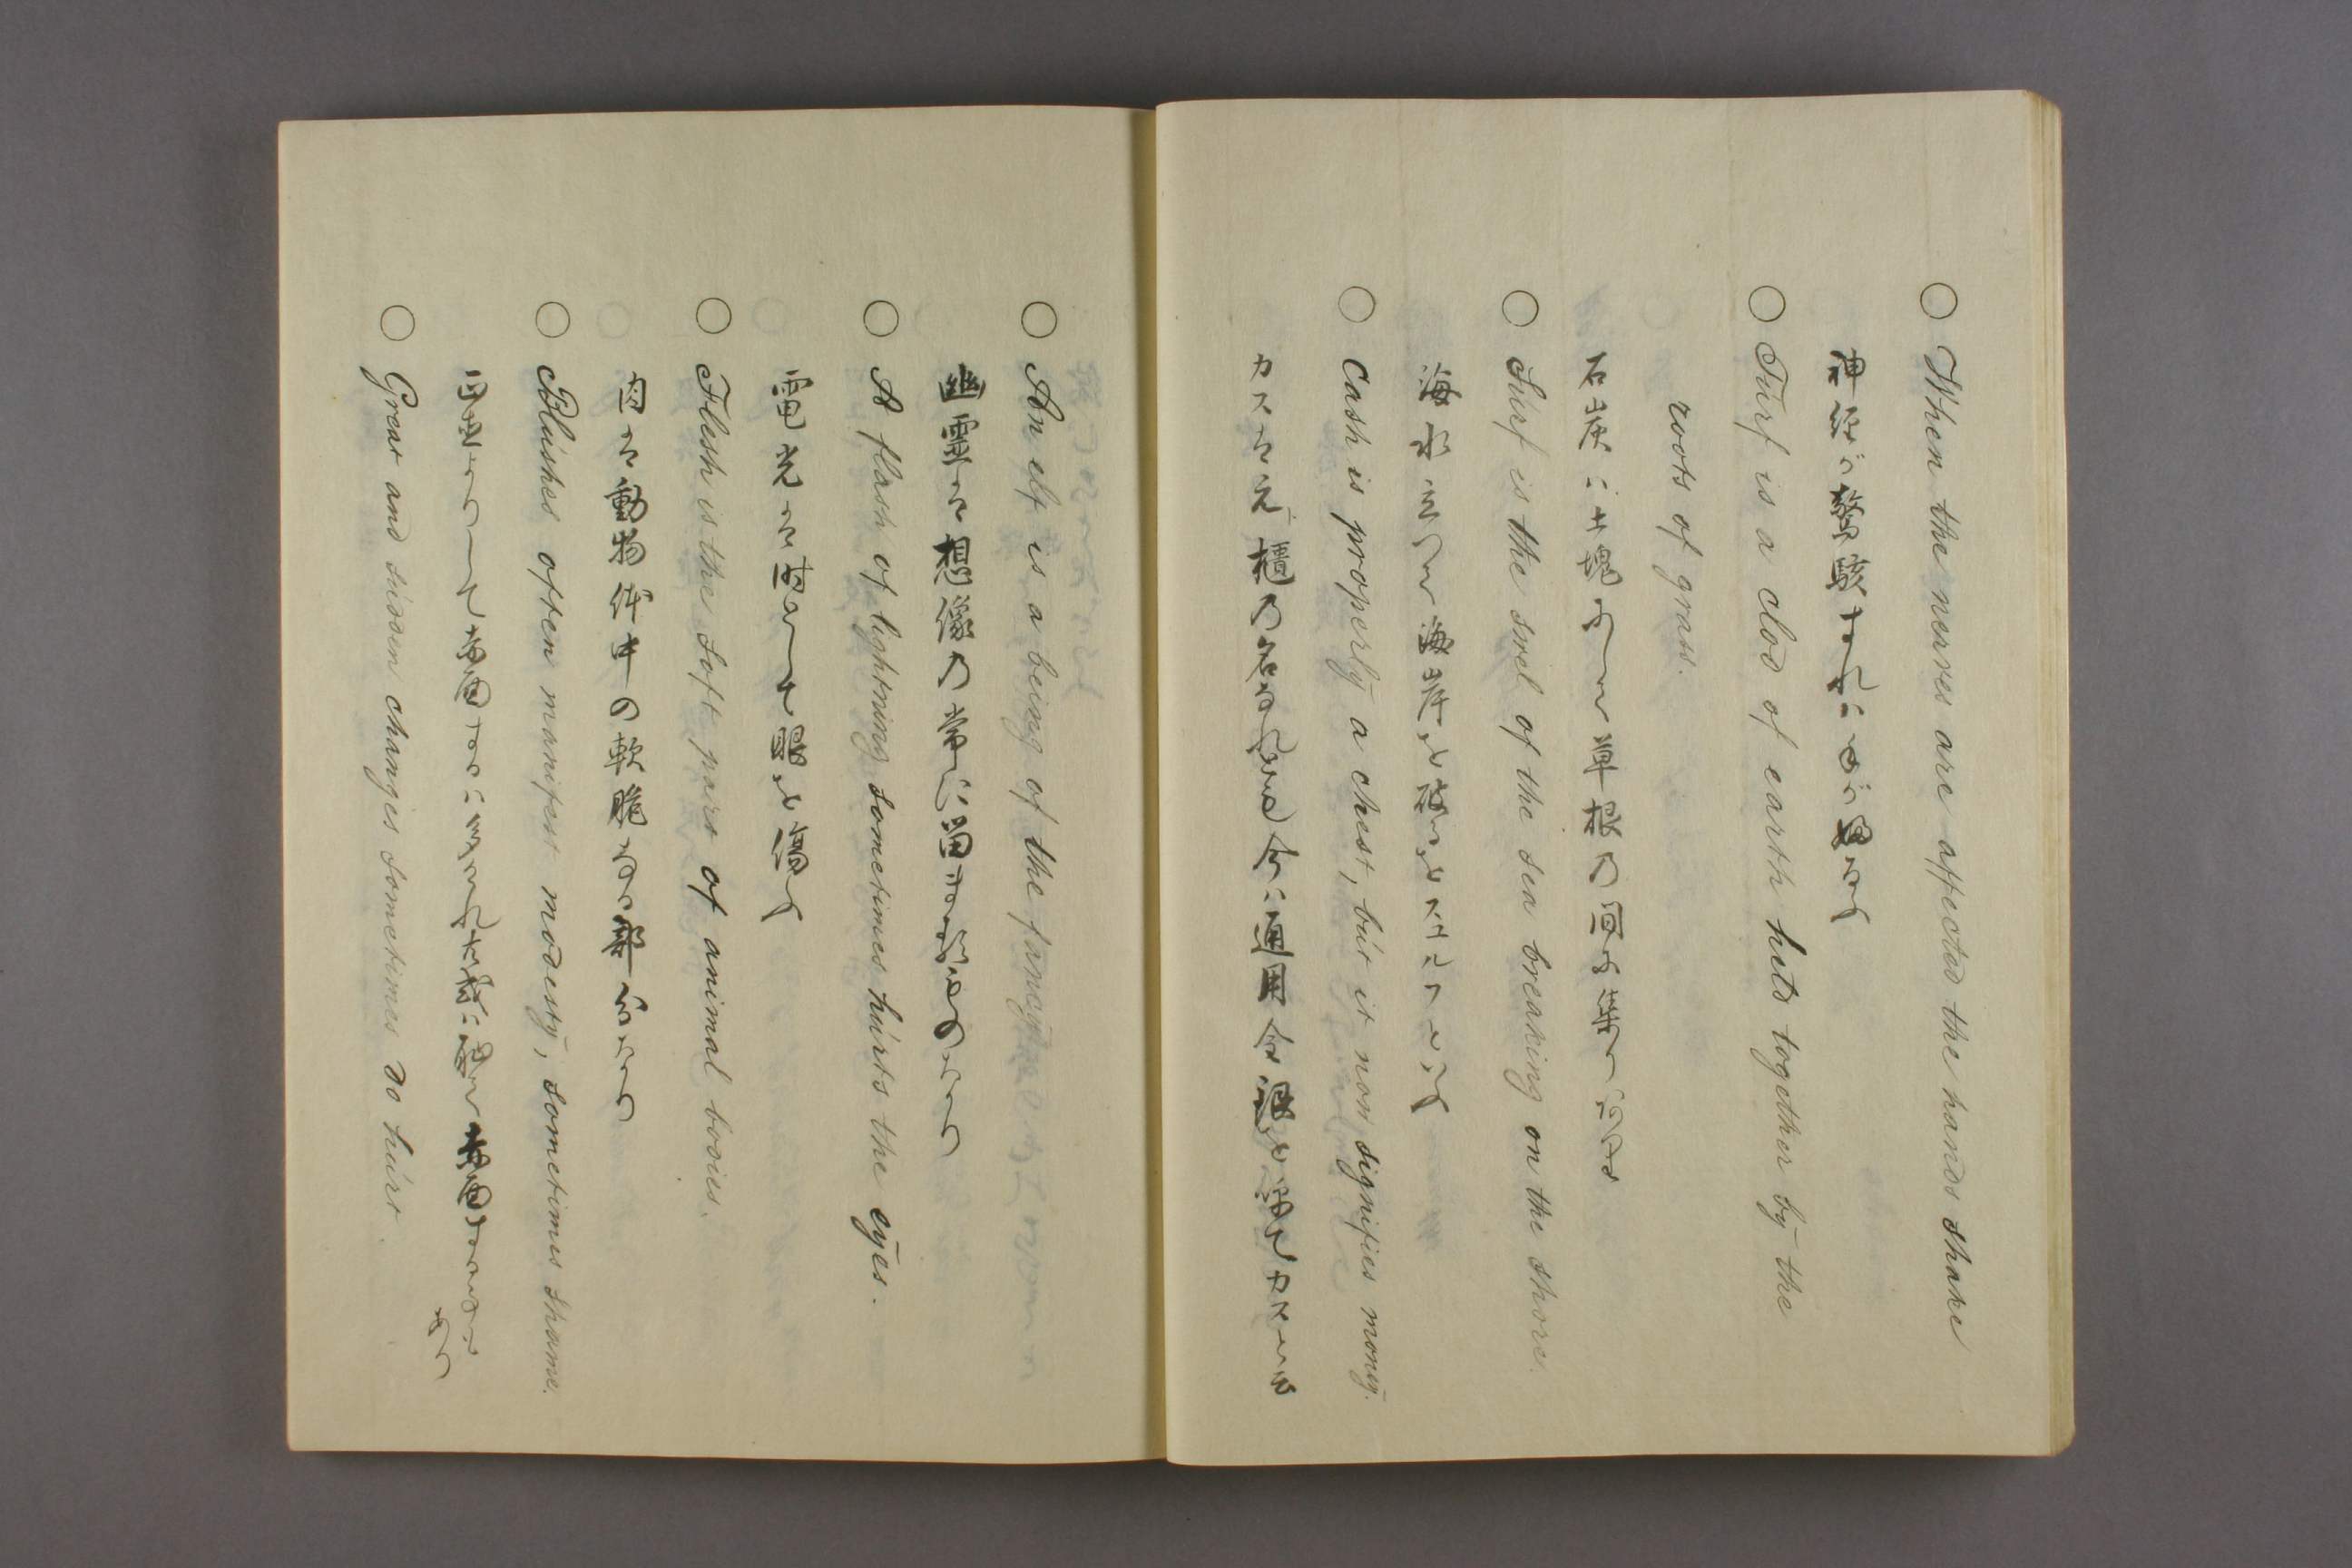 ○ When the nerves are affected the hands shake
神経が驚駭すれば手が
○ Turf is a clod of earth held together by the
roots of grass.
石炭ハ土塊にして草根の間に集り
○ Surf is the swel of the sea breaking on the shore.
海水立て海岸を破るをスュルフといふ
○ Cash is properly a chest, but it now signifies money.
カスハ元ト櫃の名なれども今ハ通用金銀を カスと云
○ An elf is a being of the fancy
幽霊ハ想像の常に留まるものなり
○ A flash of lightning sometimes hurts the eyes.
電光ハ時として眼を傷ふ
○ Flesh is the soft part of animal bodies.
肉ハ動物体中の軟脆なる部分なり
○ Blushes often manifest modesty, sometimes shame.
正直よりして赤面するハ多けれ 赤面することも
あり
○ Great and sudden changes sometimes do hurt.